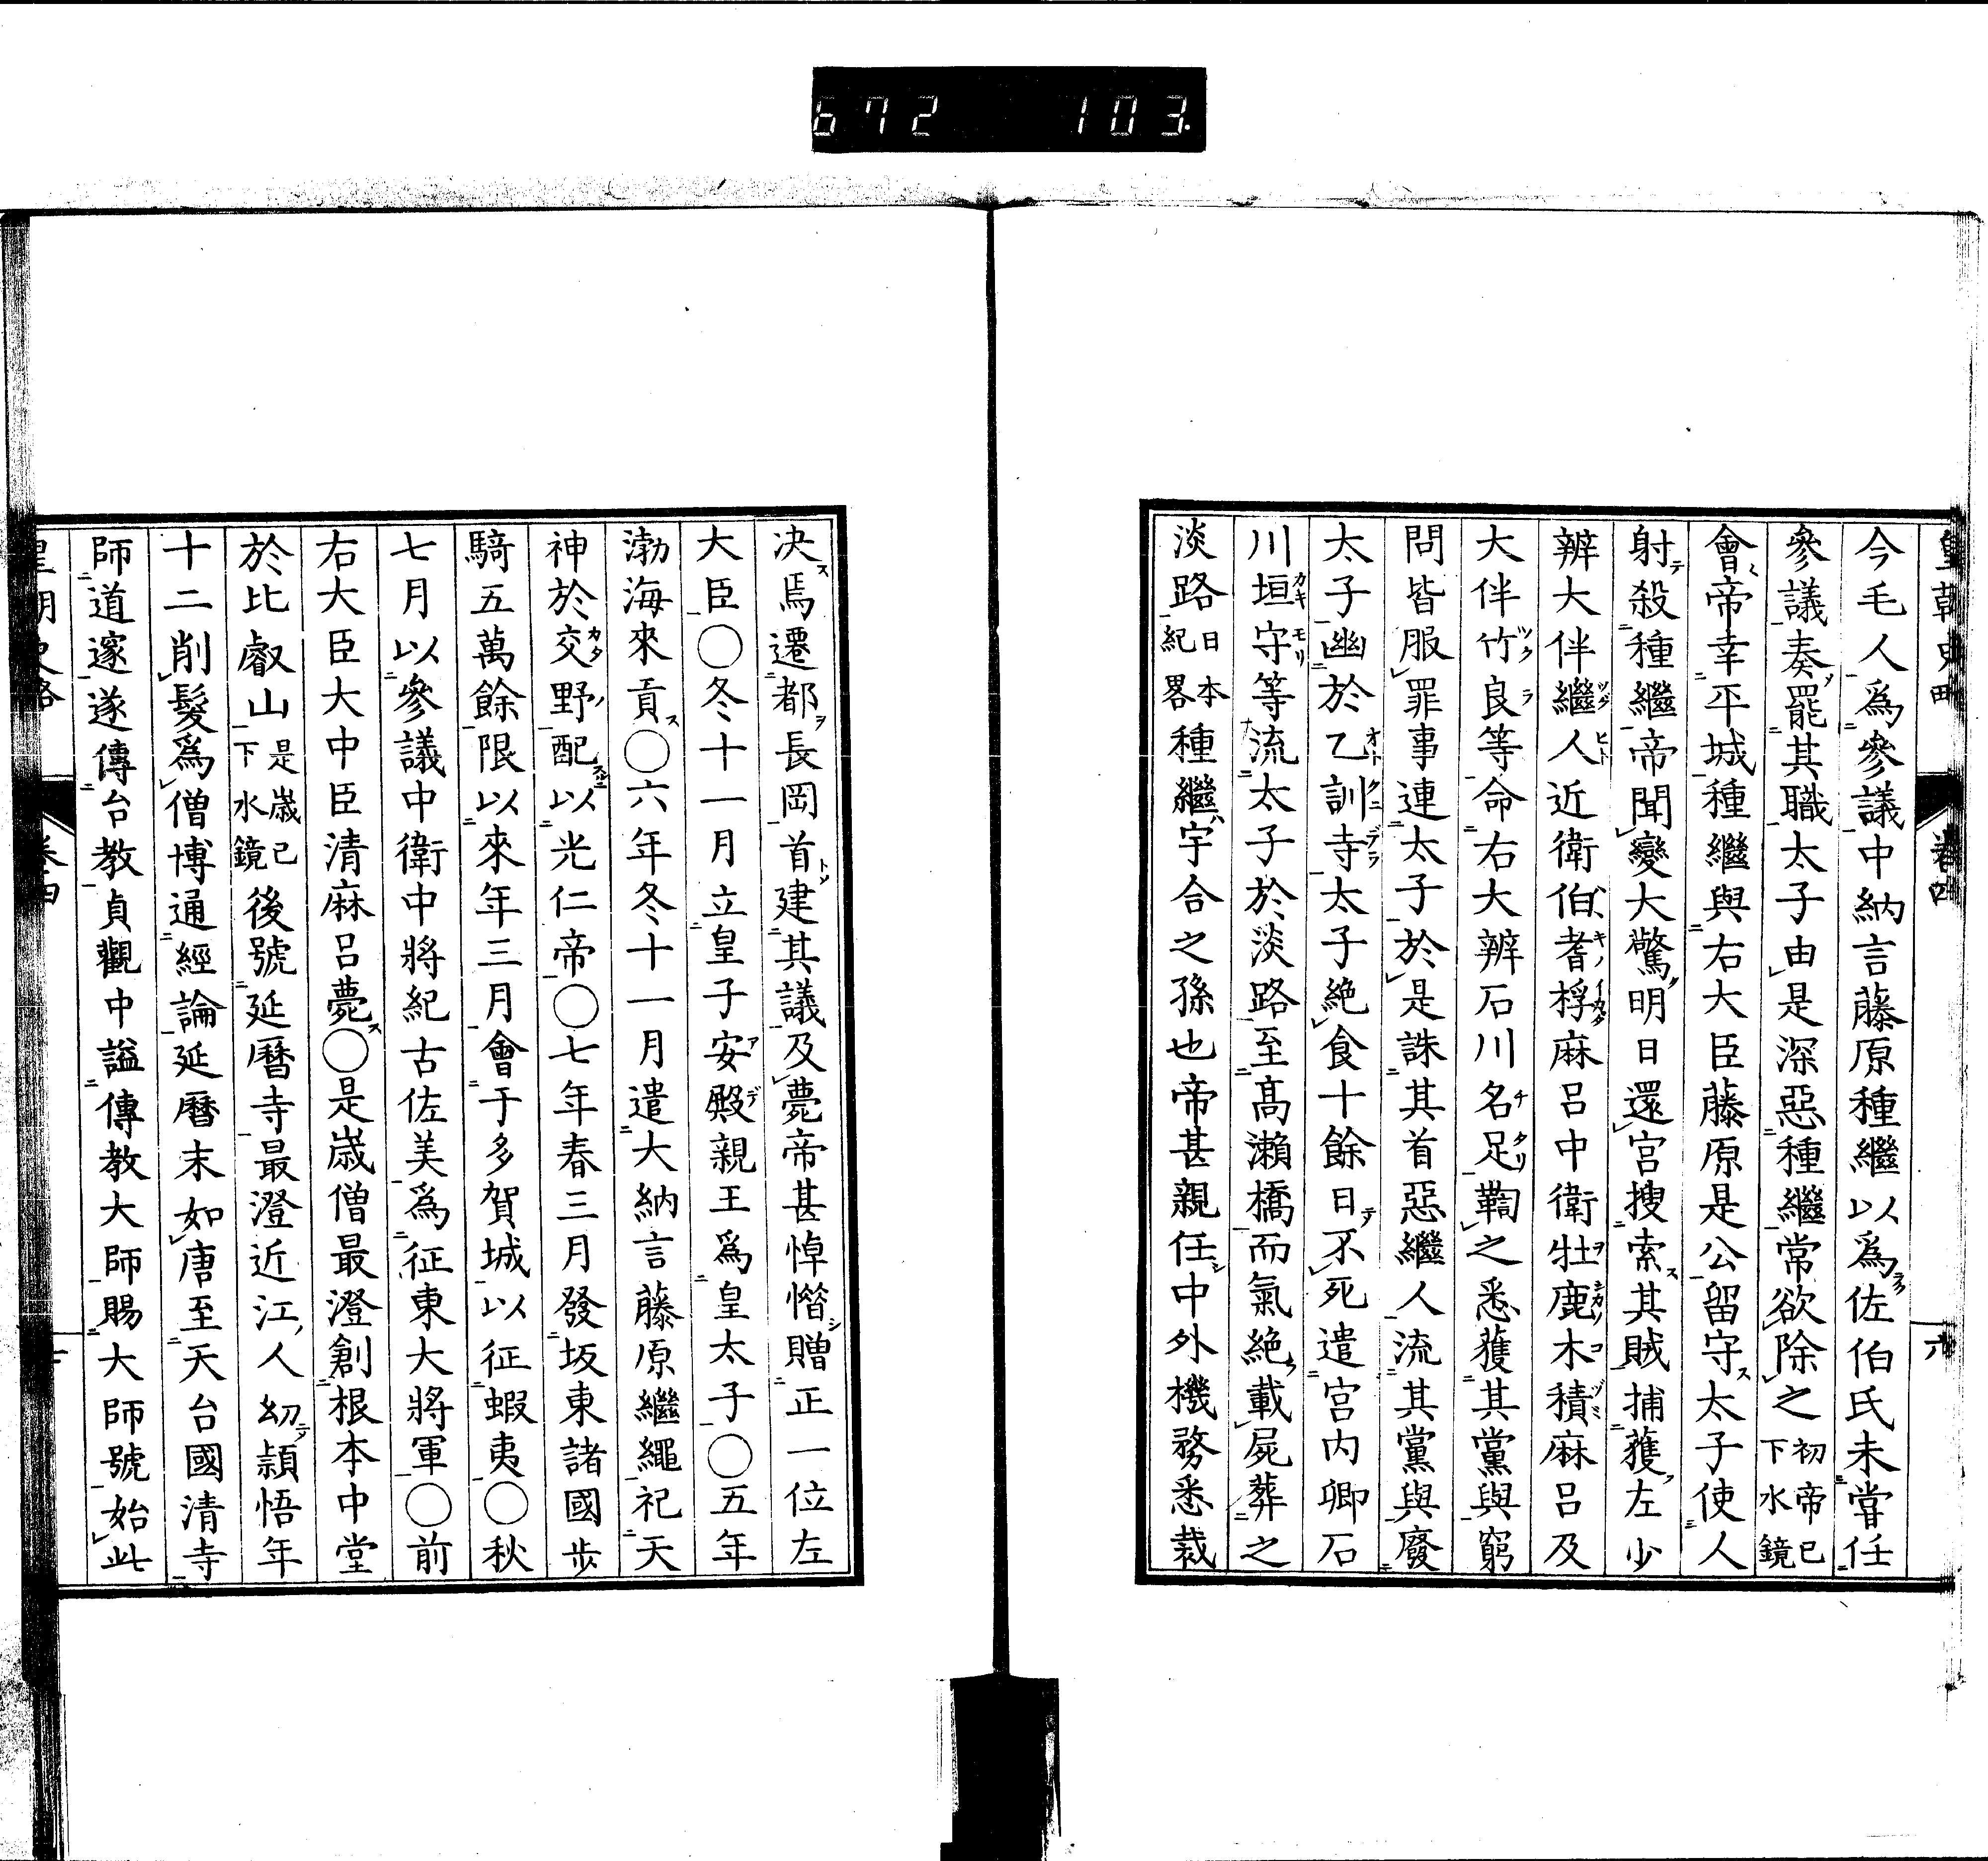 672 103.
皇朝史略 卷四 六
今毛人爲參議中納言藤原種繼以爲佐伯氏未嘗任
參議奏罷其職太子由是深惡種繼常欲除之初帝已下水鏡
會帝幸平城種繼與右大臣藤原是公留守太子使人
射殺種繼帝聞變大驚明日還宮搜索其賊捕獲左少
辨大伴繼人近衛伯耆桴麻呂中衛牡鹿木積麻呂及
大伴竹良等命右大辨石川名足鞫之悉獲其黨與窮
問皆服罪事連太子於是誅其首惡繼人流其黨與廢
太子幽於乙訓寺太子絶食十餘日不死遣宮内卿石
川垣守等流太子於淡路至高瀨橋而氣絶載屍葬之
淡路日本紀畧種繼宇合之孫也帝甚親任中外機務悉裁
決焉遷都長岡首建其議及薨帝甚悼惜贈正一位左
大臣〇冬十一月立皇子安殿親王爲皇太子〇五年
渤海來貢〇六年冬十一月遣大納言藤原繼繩祀天
神於交野配以光仁帝〇七年春三月發坂東諸國步
騎五萬餘限以來年三月會于多賀城以征蝦夷〇秋
七月以參議中衛中將紀古佐美爲征東大將軍〇前
右大臣大中臣清麻呂薨〇是歲僧最澄創根本中堂
於比叡山是歲已下水鏡後號延曆寺最澄近江人幼穎悟年
十二削髮爲僧博通經論延曆末如唐至天台國清寺
師道邃遂傳台教貞觀中謚傳教大師賜大師號始此
皇朝史略 卷四